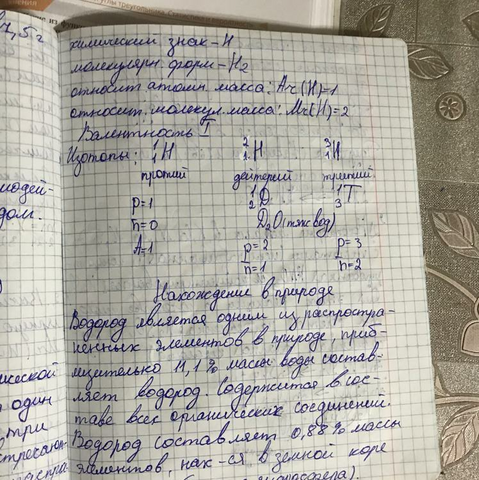 7,5г
химический знак - H
молекулярн. форм - H2
относит атомн. масса: Ar(H)=1
относит. молекул. масса: Mr(H)=2
Валентность I
Изотопы: 1 1 H 2 1 H 3 1 H
протий дейтерий тритий
1 2 D 1 3 T
p=1 D2O (тяж вод)
n=0
A=1 p=2 p=3
n=1 n=2
Нахождение в природе
Водород является одним из распростра-
ненных элементов в природе, приб-
лизительно 11,1% массы воды состав-
ляет водород. Содержится в сос-
таве всех органических соединений.
Водород составляет 0,88% массы
элементов, нах-ся в земной коре
дом.
ической
один
три